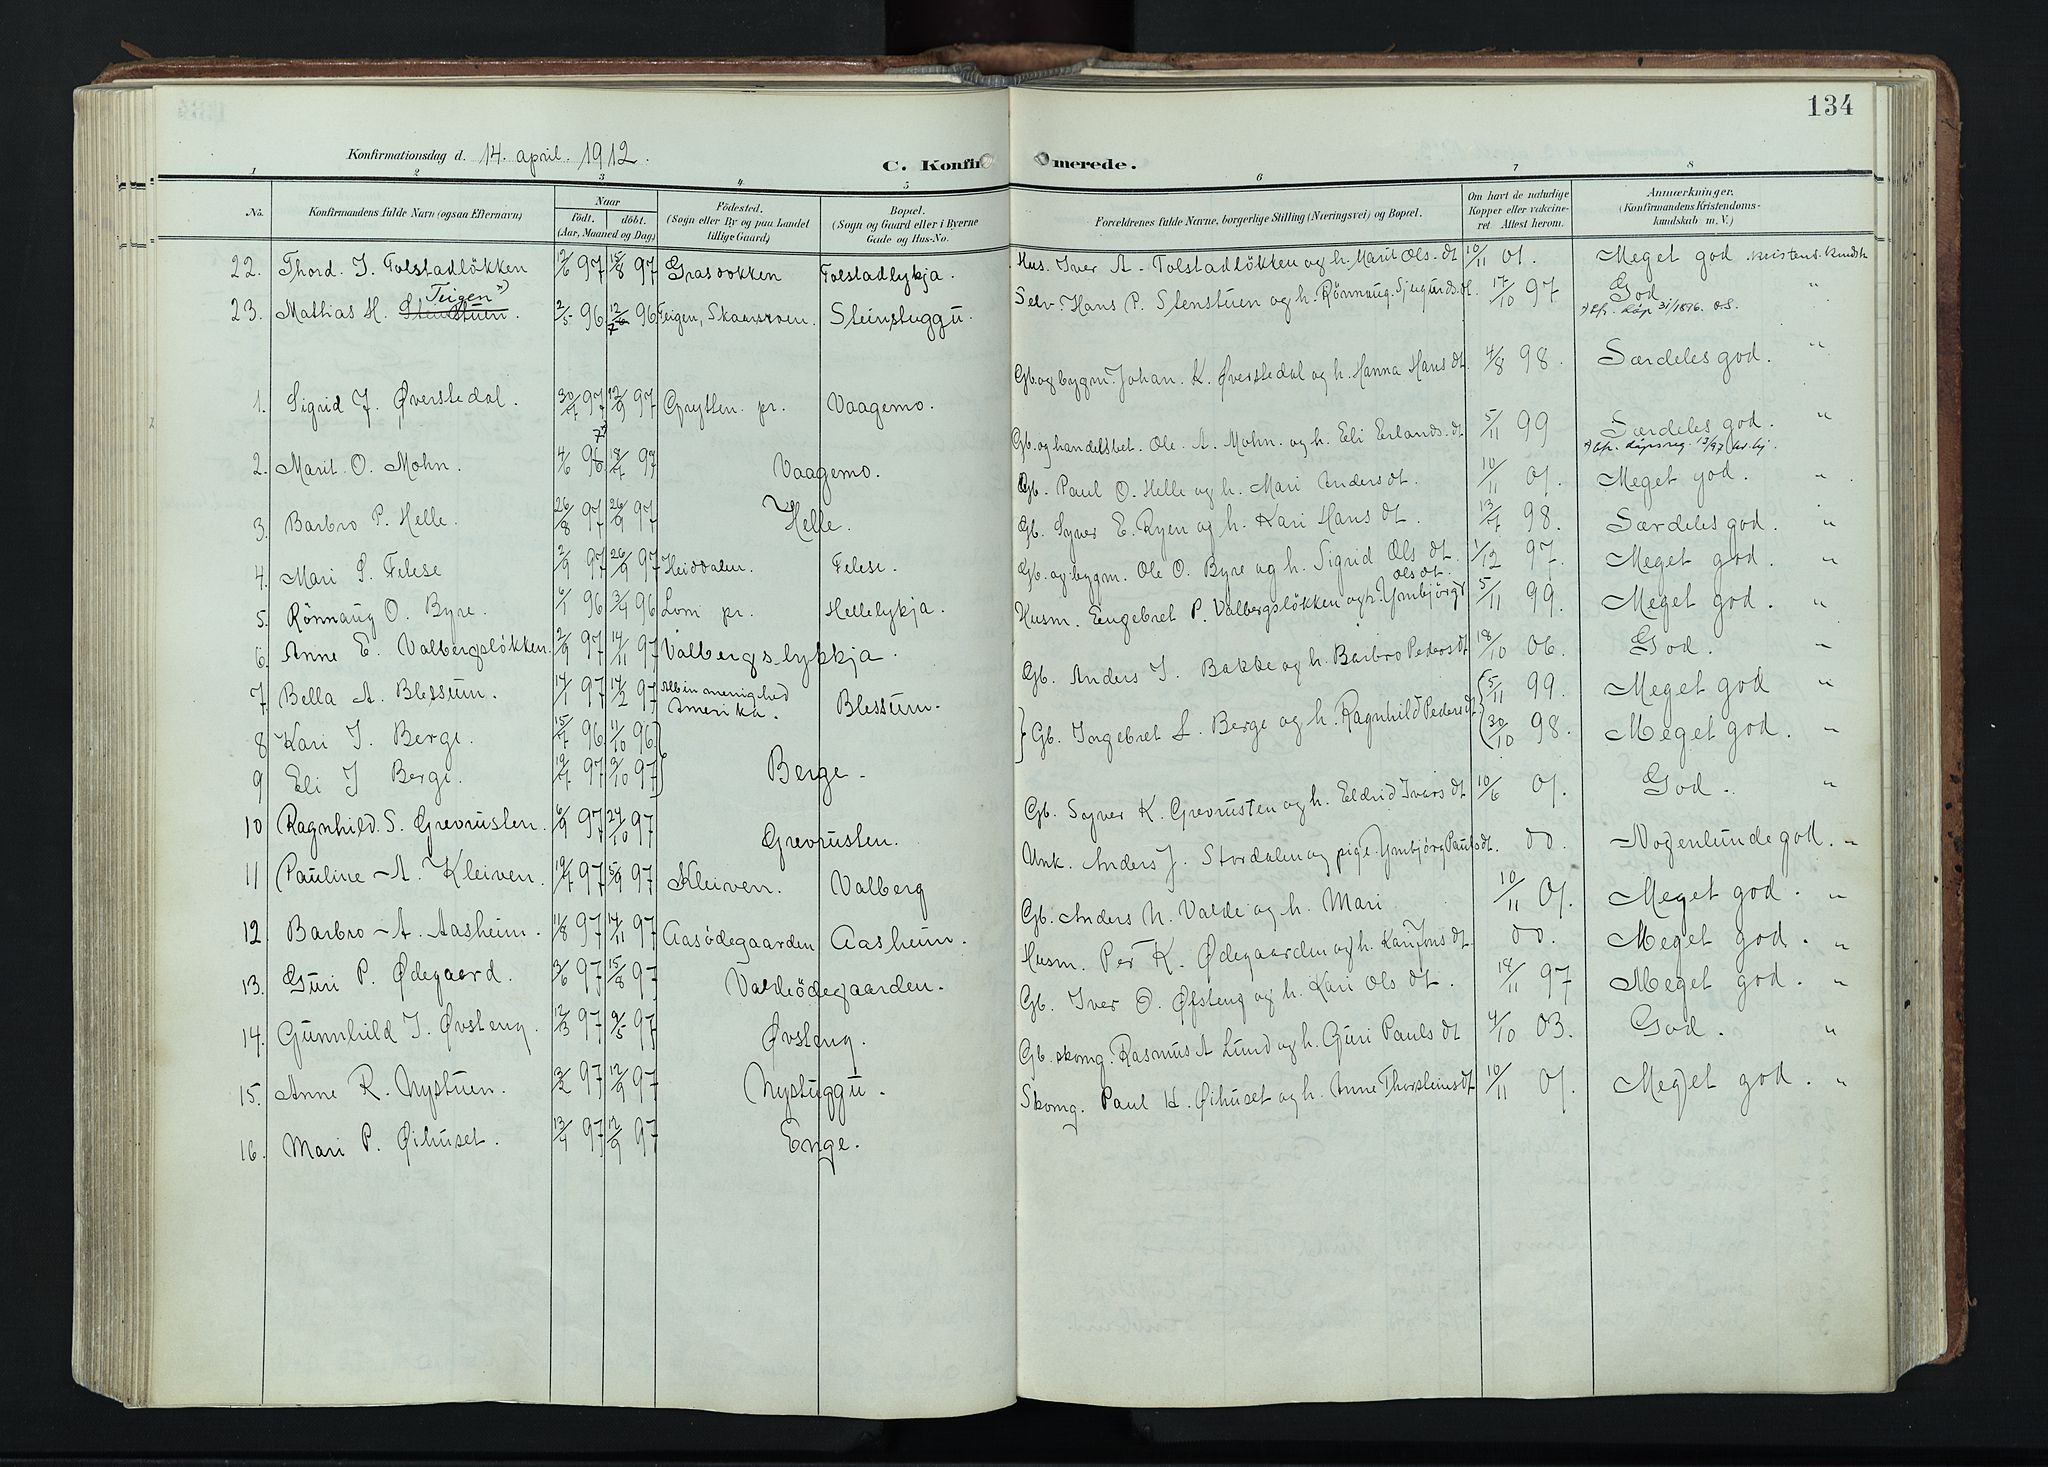 134
Konfirmationsdag d. 14. april. 1912.
C. Konfirmerede.
1 2 3 4 5 6 7 8
No. Konfirmandens fulde Navn (ogsaa Efternavn) Naar født. døbt. (Aar, Maaned og Dag) Fødested. (Sogn eller By og paa Landet tillige Gaard) Bopæl. (Sogn og Gaard eller i Byerne Gade og Hus-No. Forældrenes fulde Navne, borgerlige Stilling (Næringsvei) og Bopæl. Om havt de naturlige Kopper eller vakcineret Attest herom. Anmærkninger. (Konfirmandens Kristendomskundskab m. V.)
22. Thord. I. Tolstadløkken 12/6 97 15/8 97 Grasvokken Tolstadlykja. Hus. Iver A. Tolstadløkken og h. Marit Ols. dt 10/11 01. Meget god kristens. kundsk
23. Mathias H. Stenstuen. Teigen *) 2/5 96 12/7 96 Teigen, Skaarvoen. Steinstuggu. Selv. Hans P. Stenstuen og h. Rønnaug Sjugurds. dt 17/10 97 God "
*) Cfr. Dåp 31/1896. O.S.
1. Sigrid J. Øverstedal. 30/7 97 12/9 97 Grytten pr. Vaagemo. Gb og bygm. Johan. K. Øverstedal og h. Hanna Hans dt. 4/8 98. Særdeles god. "
2. Marit. O. Mohn. 4/6 96 18/7 97 Vaagemo. Gb. og handelsbet. Ole. A. Mohn. og h. Eli Erlands. dt 5/11 99 Særdeles god. "
3. Barbro P. Helle. 26/8 97 26/9 97 Helle. Gb. Paul O. Helle og h. Mari Anders dt. 10/11 01. Meget god. "
4. Mari S. Felese 2/9 97 26/9 97 Heidalen. Felese. Gb. Syver E. Ryen og h. Kari Hans dt. 13/7 98. Særdeles god. "
5. Rønnaug O. Byre. 6/1 96 3/4 96 Lom pr. Hellelykja. Gb. og bygm. Ole O. Byre og h. Sigrid Ols dt. 1/12 97. Meget god "
6. Anne E. Valbergsløkken. 2/9 97 14/11 97 Valbergslykkja. Husm. Engebret P. Valbergsløkken og h. Ymbjørg Ols dt. 5/11 99. Meget god. "
7 Bella A. Blessum. 14/1 97 14/2 97 Albin menighed Amerika. Blessum. Gb. Anders I. Bakke og h. Barbro Peders dt 18/10 06. God. "
8 Kari I. Berge. 15/7 96 11/10 96 Berge. Gb. Ingebret L. Berge og h. Ragnhild Peders dt 5/11 99. Meget god "
9 Eli I Berge. 19/7 97 3/10 97 30/10 98. Meget god. "
10 Ragnhild. S. Grevrusten. 6/9 97 24/10 97 Grevrusten. Gb. Syver K. Grevrusten og h. Eldrid Ivars dt 10/6 01. God. "
11 Pauline A. Kleiven. 19/7 97 5/9 97 Kleiven. Valberg Unk. Anders J. Stordalen og pige. Ymbjørg Pauls dt. do. Nogenlunde god. "
12. Barbro A. Aasheim. 11/8 97 14/11 97 Aasødegaarden Aasheim. Gb. Anders N. Valde og h. Mari 10/11 01. Meget god. "
13. Guri P. Ødegaard. 3/6 97 15/8 97 Valdeødegaarden. Husm. Per K. Ødegaarden og h. Kari Jons dt. do. Meget god. "
14. Gunnhild I. Øvsteng. 12/3 97 9/5 97 Øvsteng. Gb. Iver O. Øfsteng og h. Kari Ols dt. 14/11 97 Meget god. "
15. Anne R. Nystuen. 3/2 97 12/9 97 Nystuggu. Gb. skomg. Rasmus A Lund og h. Guri Pauls dt 4/10 03. God. "
16. Mari P. Øihuset. 13/7 97 12/9 97 Enge. Skomg. Paul H. Øihuset og h. Anne Thorsteins dt 10/11 01. Meget god. "